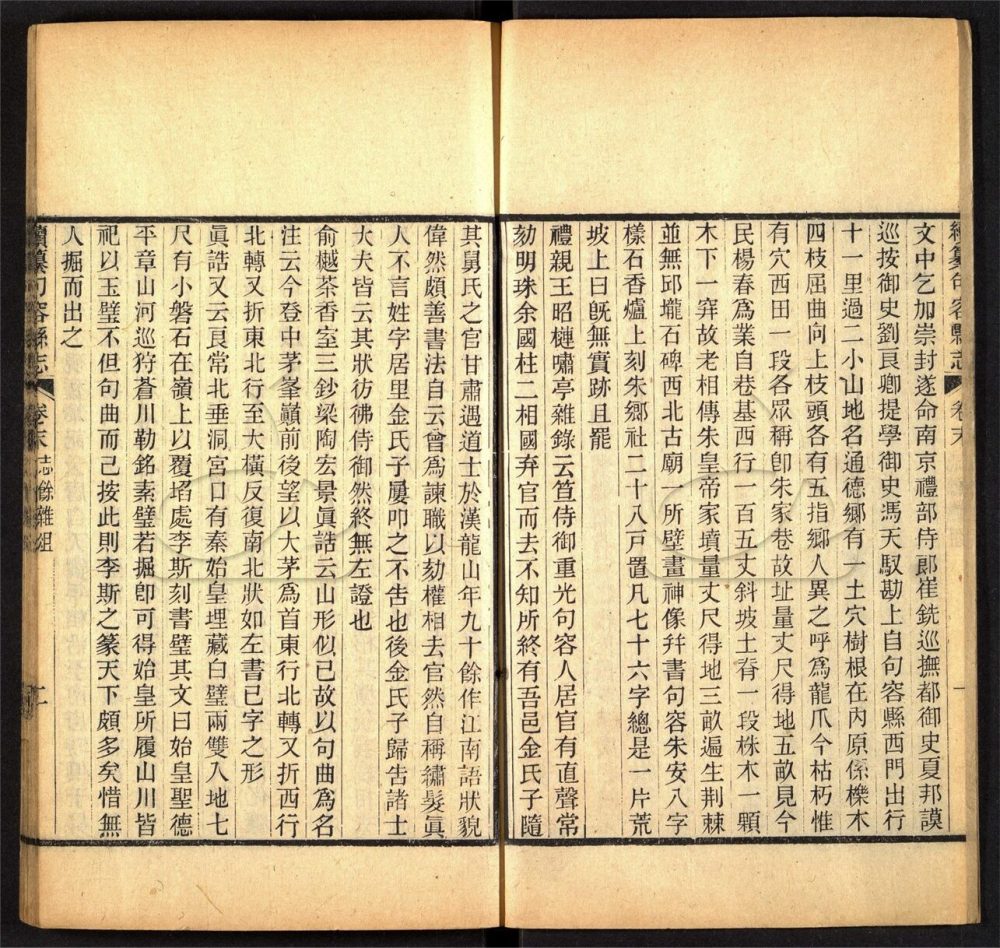 續纂句容縣志 卷末 一
文中乞加崇封遂命南京禮部侍郎崔銑巡撫都御史夏邦謨
巡按御史劉良卿提學御史馮天馭勘上自句容縣西門出行
十一里過二小山地名通德鄉有一土穴樹根在內原係櫟木
四枝屈曲向上枝頭各有五指鄉人異之呼爲龍爪今枯朽惟
有穴西田一段各眾稱卽朱家巷故址量丈尺得地五畝見今
民楊春爲業自巷基西行一百五丈斜坡土脊一段株木一顆
木下一穽故老相傳朱皇帝家墳量丈尺得地三畝遍生荆棘
並無邱壠石碑西北古廟一所壁畫神像幷書句容朱安八字
樣石香爐上刻朱鄉社二十八戸置凡七十六字總是一片荒
坡上曰旣無實跡且罷
禮親王昭槤嘯亭雜錄云笪侍御重光句容人居官有直聲常
劾明珠余國柱二相國弃官而去不知所終有吾邑金氏子隨
其舅氏之官甘肅遇道士於漢龍山年九十餘作江南語狀貌
偉然頗善書法自云曾爲諫職以劾權相去官然自稱繡髮眞
人不言姓字居里金氏子屢叩之不告也後金氏子歸告諸士
大夫皆云其狀彷彿侍御然終無左證也
俞樾茶香室三鈔梁陶宏景眞誥云山形似已故以句曲爲名
注云今登中茅峯巓前後望以大茅爲首東行北轉又折西行
北轉又折東北行至大橫反復南北狀如左書已字之形
眞誥又云良常北垂洞宮口有秦始皇埋藏白璧兩雙入地七
尺有小磐石在嶺上以覆埳處李斯刻書璧其文曰始皇聖德
平章山河巡狩蒼川勒銘素璧若掘卽可得始皇所履山川皆
祀以玉璧不但句曲而已按此則李斯之篆天下頗多矣惜無
人掘而出之
續纂句容縣志 卷末 志餘雜俎 二